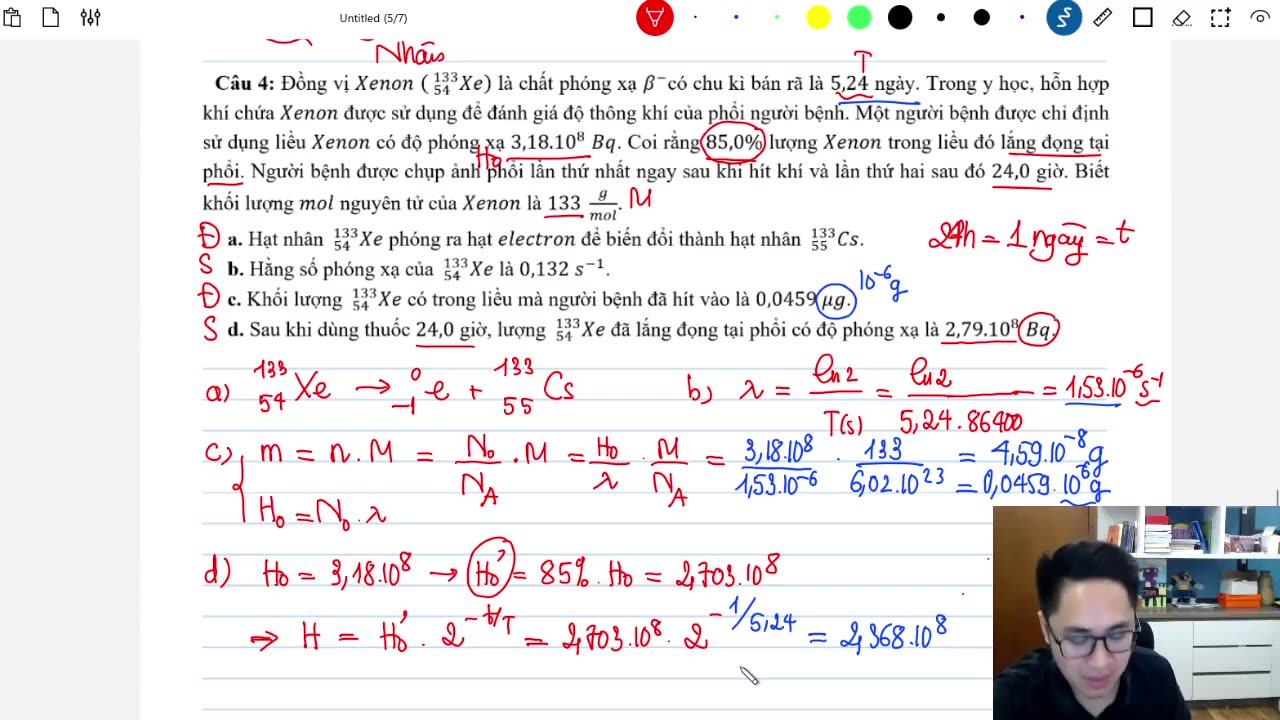 Untitled (5/7)
Nhãs
T
Câu 4: Đồng vị Xenon ( ¹³³₅₄Xe) là chất phóng xạ β⁻có chu kì bán rã là 5,24 ngày. Trong y học, hỗn hợp
khí chứa Xenon được sử dụng để đánh giá độ thông khí của phổi người bệnh. Một người bệnh được chỉ định
sử dụng liều Xenon có độ phóng xạ 3,18.10⁸ Bq. Coi rằng 85,0% lượng Xenon trong liều đó lắng đọng tại
H₀
phổi. Người bệnh được chụp ảnh phổi lần thứ nhất ngay sau khi hít khí và lần thứ hai sau đó 24,0 giờ. Biết
khối lượng mol nguyên tử của Xenon là 133 g/mol. M
Đ a. Hạt nhân ¹³³₅₄Xe phóng ra hạt electron để biến đổi thành hạt nhân ¹³³₅₅Cs. 24h = 1 ngày = t
S b. Hằng số phóng xạ của ¹³³₅₄Xe là 0,132 s⁻¹.
Đ c. Khối lượng ¹³³₅₄Xe có trong liều mà người bệnh đã hít vào là 0,0459 μg. 10⁻⁶g
S d. Sau khi dùng thuốc 24,0 giờ, lượng ¹³³₅₄Xe đã lắng đọng tại phổi có độ phóng xạ là 2,79.10⁸ Bq.
a) ¹³³₅₄Xe → ⁰₋₁e + ¹³³₅₅Cs b) λ = ln2/T(s) = ln2/5,24.86400 = 1,53.10⁻⁶ s⁻¹
c) m = n.M = N₀/N_A . M = H₀/λ . M/N_A = 3,18.10⁸/1,53.10⁻⁶ . 133/6,02.10²³ = 4,59.10⁻⁸g
= 0,0459.10⁻⁶g
H₀ = N₀.λ
d) H₀ = 3,18.10⁸ → H₀' = 85% . H₀ = 2,703.10⁸
⇒ H = H₀' . 2^(-t/T) = 2,703.10⁸ . 2^(-1/5,24) = 2,368.10⁸